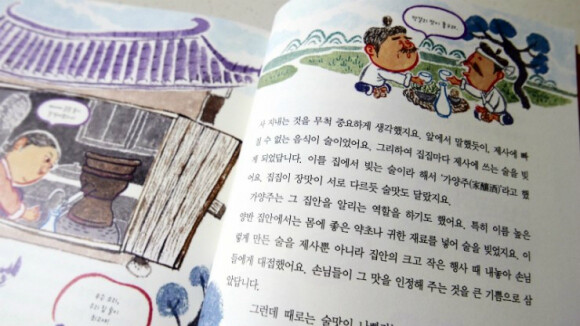 지내는 것을 무척 중요하게 생각했지요. 앞에서 말했듯이, 제사에 빠
질 수 없는 음식이 술이었어요. 그리하여 집집마다 제사에 쓰는 술을 빚
게 되었답니다. 이를 집에서 빚는 술이라 해서 '가양주(家釀酒)'라고 했
어요. 집집이 장맛이 서로 다르듯 술맛도 달랐지요.
가양주는 그 집안을 알리는 역할을 하기도 했어요. 특히 이름 높은
양반 집안에서는 몸에 좋은 약초나 귀한 재료를 넣어 술을 빚었지요. 이
렇게 만든 술을 제사뿐 아니라 집안의 크고 작은 행사 때 내놓아 손님
들에게 대접했어요. 손님들이 그 맛을 인정해 주는 것을 큰 기쁨으로 삼
았답니다.
그런데 때로는 술맛이